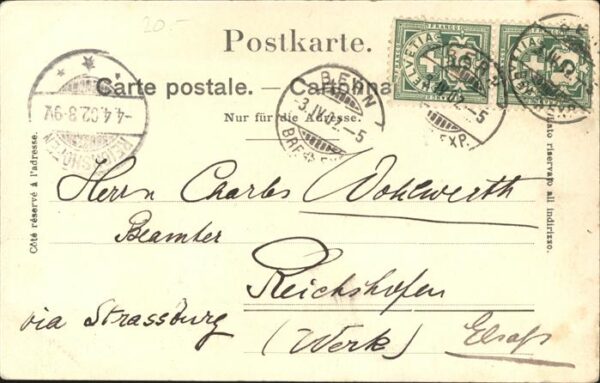 20.-
Postkarte.
Carte postale. — Cartolina
Nur für die Adresse.
HELVETIA
FRANCO
5
HELVETIA
FRANCO
BERN
3.IV.02.-5
BRF. EXP.
BERN
EXP.
-4.4.02.8-9V.
REICHSHOFEN
Côté réservé à l'adresse.
Lato riservato all indirizzo.
Herrn Charles Wohlwerth
Beamter
Reichshofen
via Strassburg (Werk) Elsass